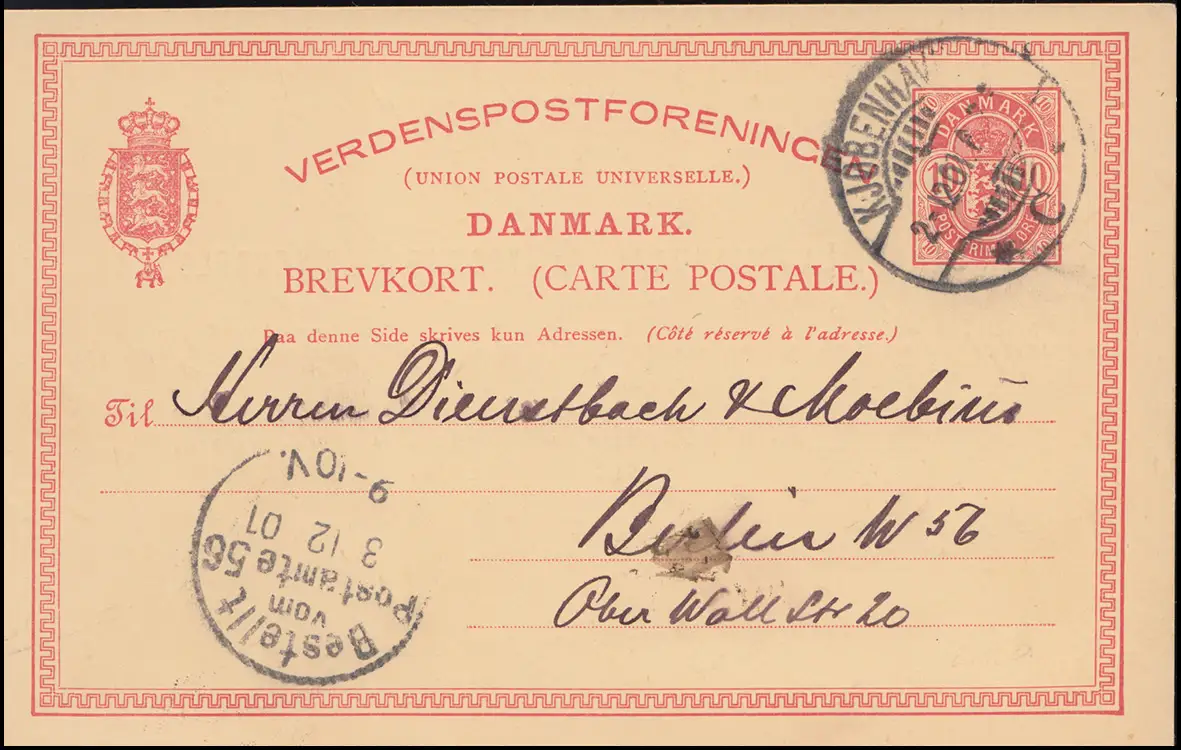 VERDENSPOSTFORENINGEN
(UNION POSTALE UNIVERSELLE.)
DANMARK.
BREVKORT. (CARTE POSTALE.)
Paa denne Side skrives kun Adressen. (Côté réservé à l'adresse.)
DANMARK
10 10
10 10
POSTFRIM ØRE
10 10
KJØBENHAVN
2-12 01
C
Til Herren Dienstbach & Moebius
Berlin W 56
Ober Wall Str 20
Bestellt
vom
Postamte 56
3 12 01
9-10V.